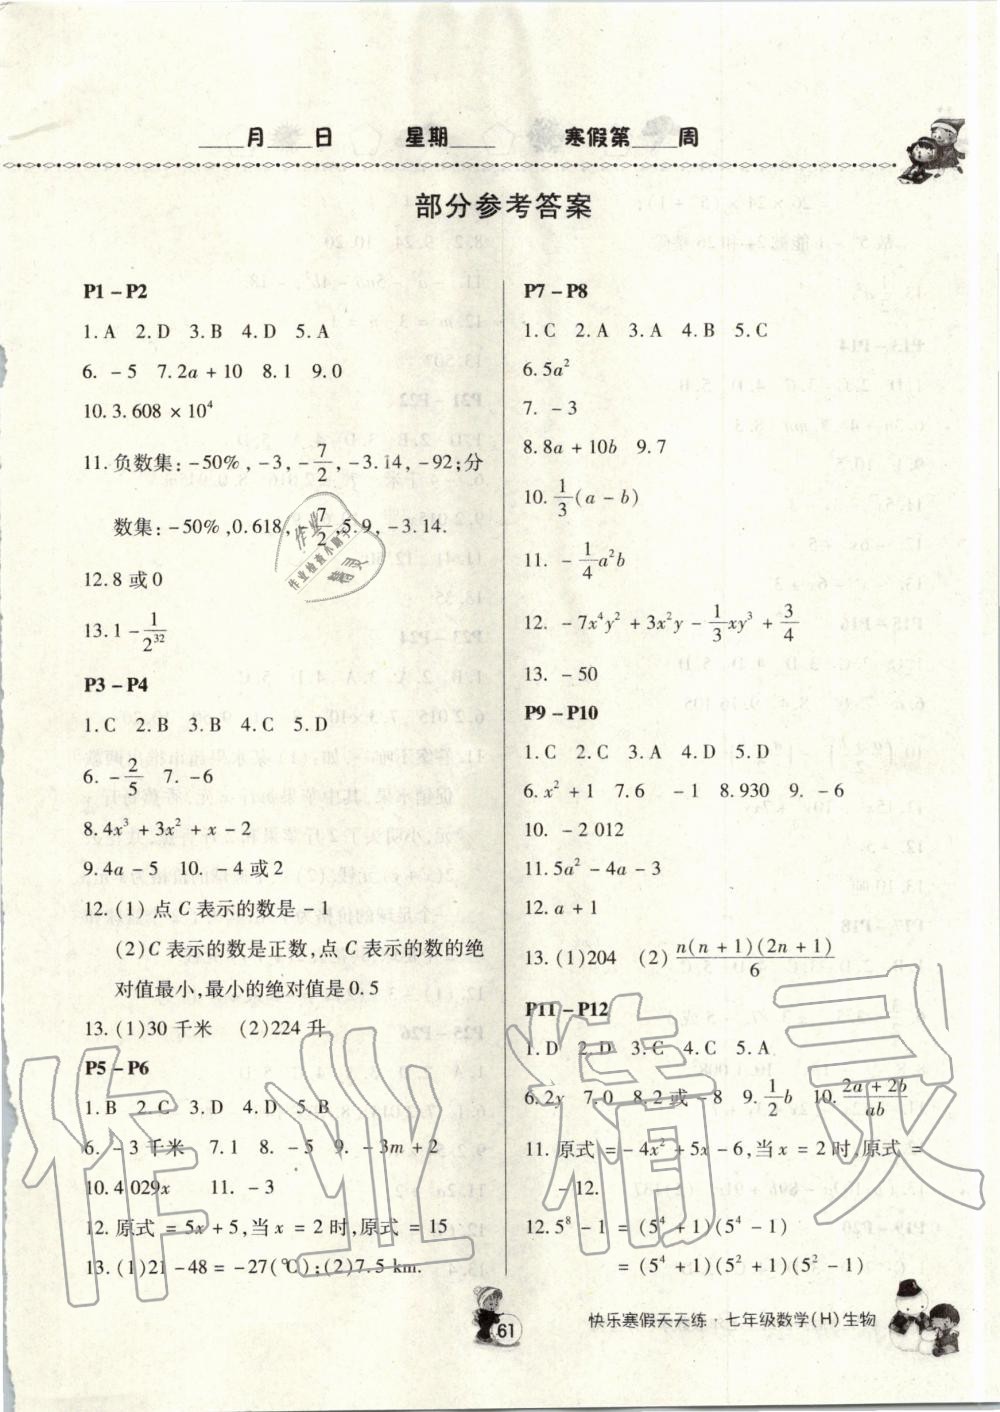 ____月____日 星期____ 寒假第____周
部分参考答案
P1-P2
1.A 2.D 3.B 4.D 5.A
6. -5 7.2a+10 8.1 9.0
10.3.608×10⁴
11.负数集:-50%,-3,-7/2,-3.14,-92;分
数集:-50%,0.618,-7/2,5.9,-3.14.
12.8或0
13.1-1/2³²
P3-P4
1.C 2.B 3.B 4.C 5.D
6.-2/5 7.-6
8.4x³+3x²+x-2
9.4a-5 10.-4或2
12.(1)点C表示的数是-1
(2)C表示的数是正数,点C表示的数的绝
对值最小,最小的绝对值是0.5
13.(1)30千米 (2)224升
P5-P6
1.B 2.C 3.D 4.D 5.B
6.-3千米 7.1 8.-5 9.-3m+2
10.4 029x 11.-3
12.原式=5x+5,当x=2时,原式=15
13.(1)21-48=-27(℃);(2)7.5 km.
P7-P8
1.C 2.A 3.A 4.B 5.C
6.5a²
7.-3
8.8a+10b 9.7
10.1/3(a-b)
11.-1/4a²b
12.-7x⁴y²+3x²y-1/3xy³+3/4
13.-50
P9-P10
1.C 2.C 3.A 4.D 5.D
6.x²+1 7.6 -1 8.930 9.-6
10.-2 012
11.5a²-4a-3
12.a+1
13.(1)204 (2)n(n+1)(2n+1)/6
P11-P12
1.D 2.D 3.C 4.C 5.A
6.2y 7.0 8.2或-8 9.1/2b 10.2a+2b/ab
11.原式=-4x²+5x-6,当x=2时,原式=
-12.
12.5⁸-1=(5⁴+1)(5⁴-1)
=(5⁴+1)(5²+1)(5²-1)
61
快乐寒假天天练·七年级数学(H)生物
作业精灵